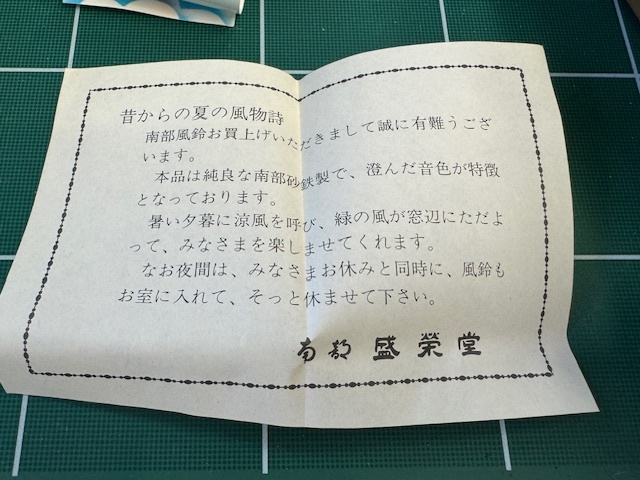 昔からの夏の風物詩
南部風鈴お買上げいただきまして誠に有難うござ
います。
本品は純良な南部砂鉄製で、澄んだ音色が特徴
となっております。
暑い夕暮に涼風を呼び、緑の風が窓辺にただよ
って、みなさまを楽しませてくれます。
なお夜間は、みなさまお休みと同時に、風鈴も
お室に入れて、そっと休ませて下さい。
南部 盛榮堂